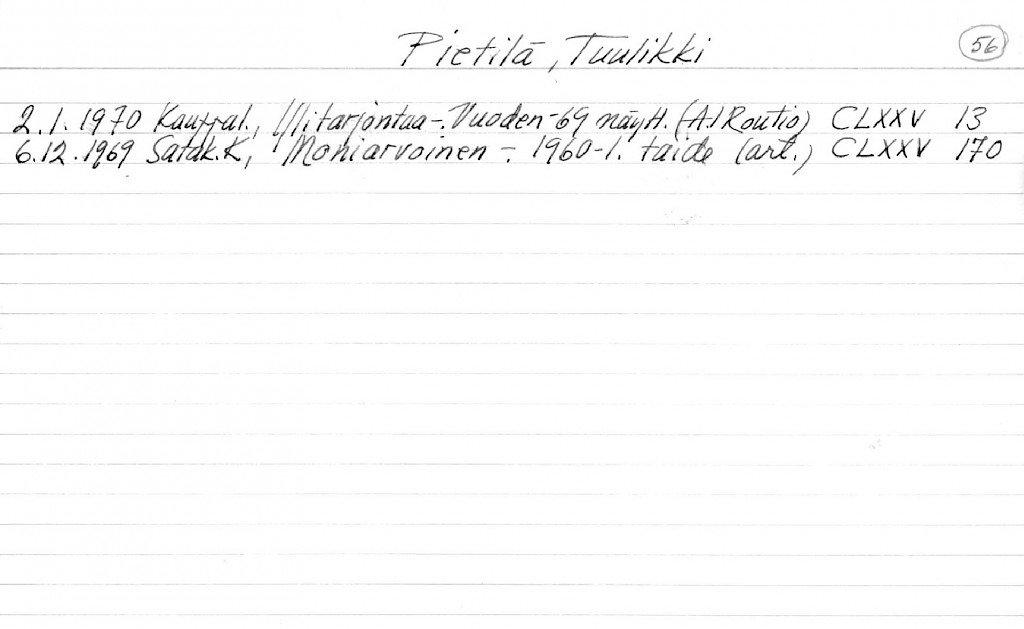 Pietilä, Tuulikki 56
2.1.1970 Kauppal., Ylitarjontaa -. Vuoden -69 näytt. (A.I Routio) CLXXV 13
6.12.1969 Satak.K, Moniarvoinen -. 1960-l. taide (art.) CLXXV 170